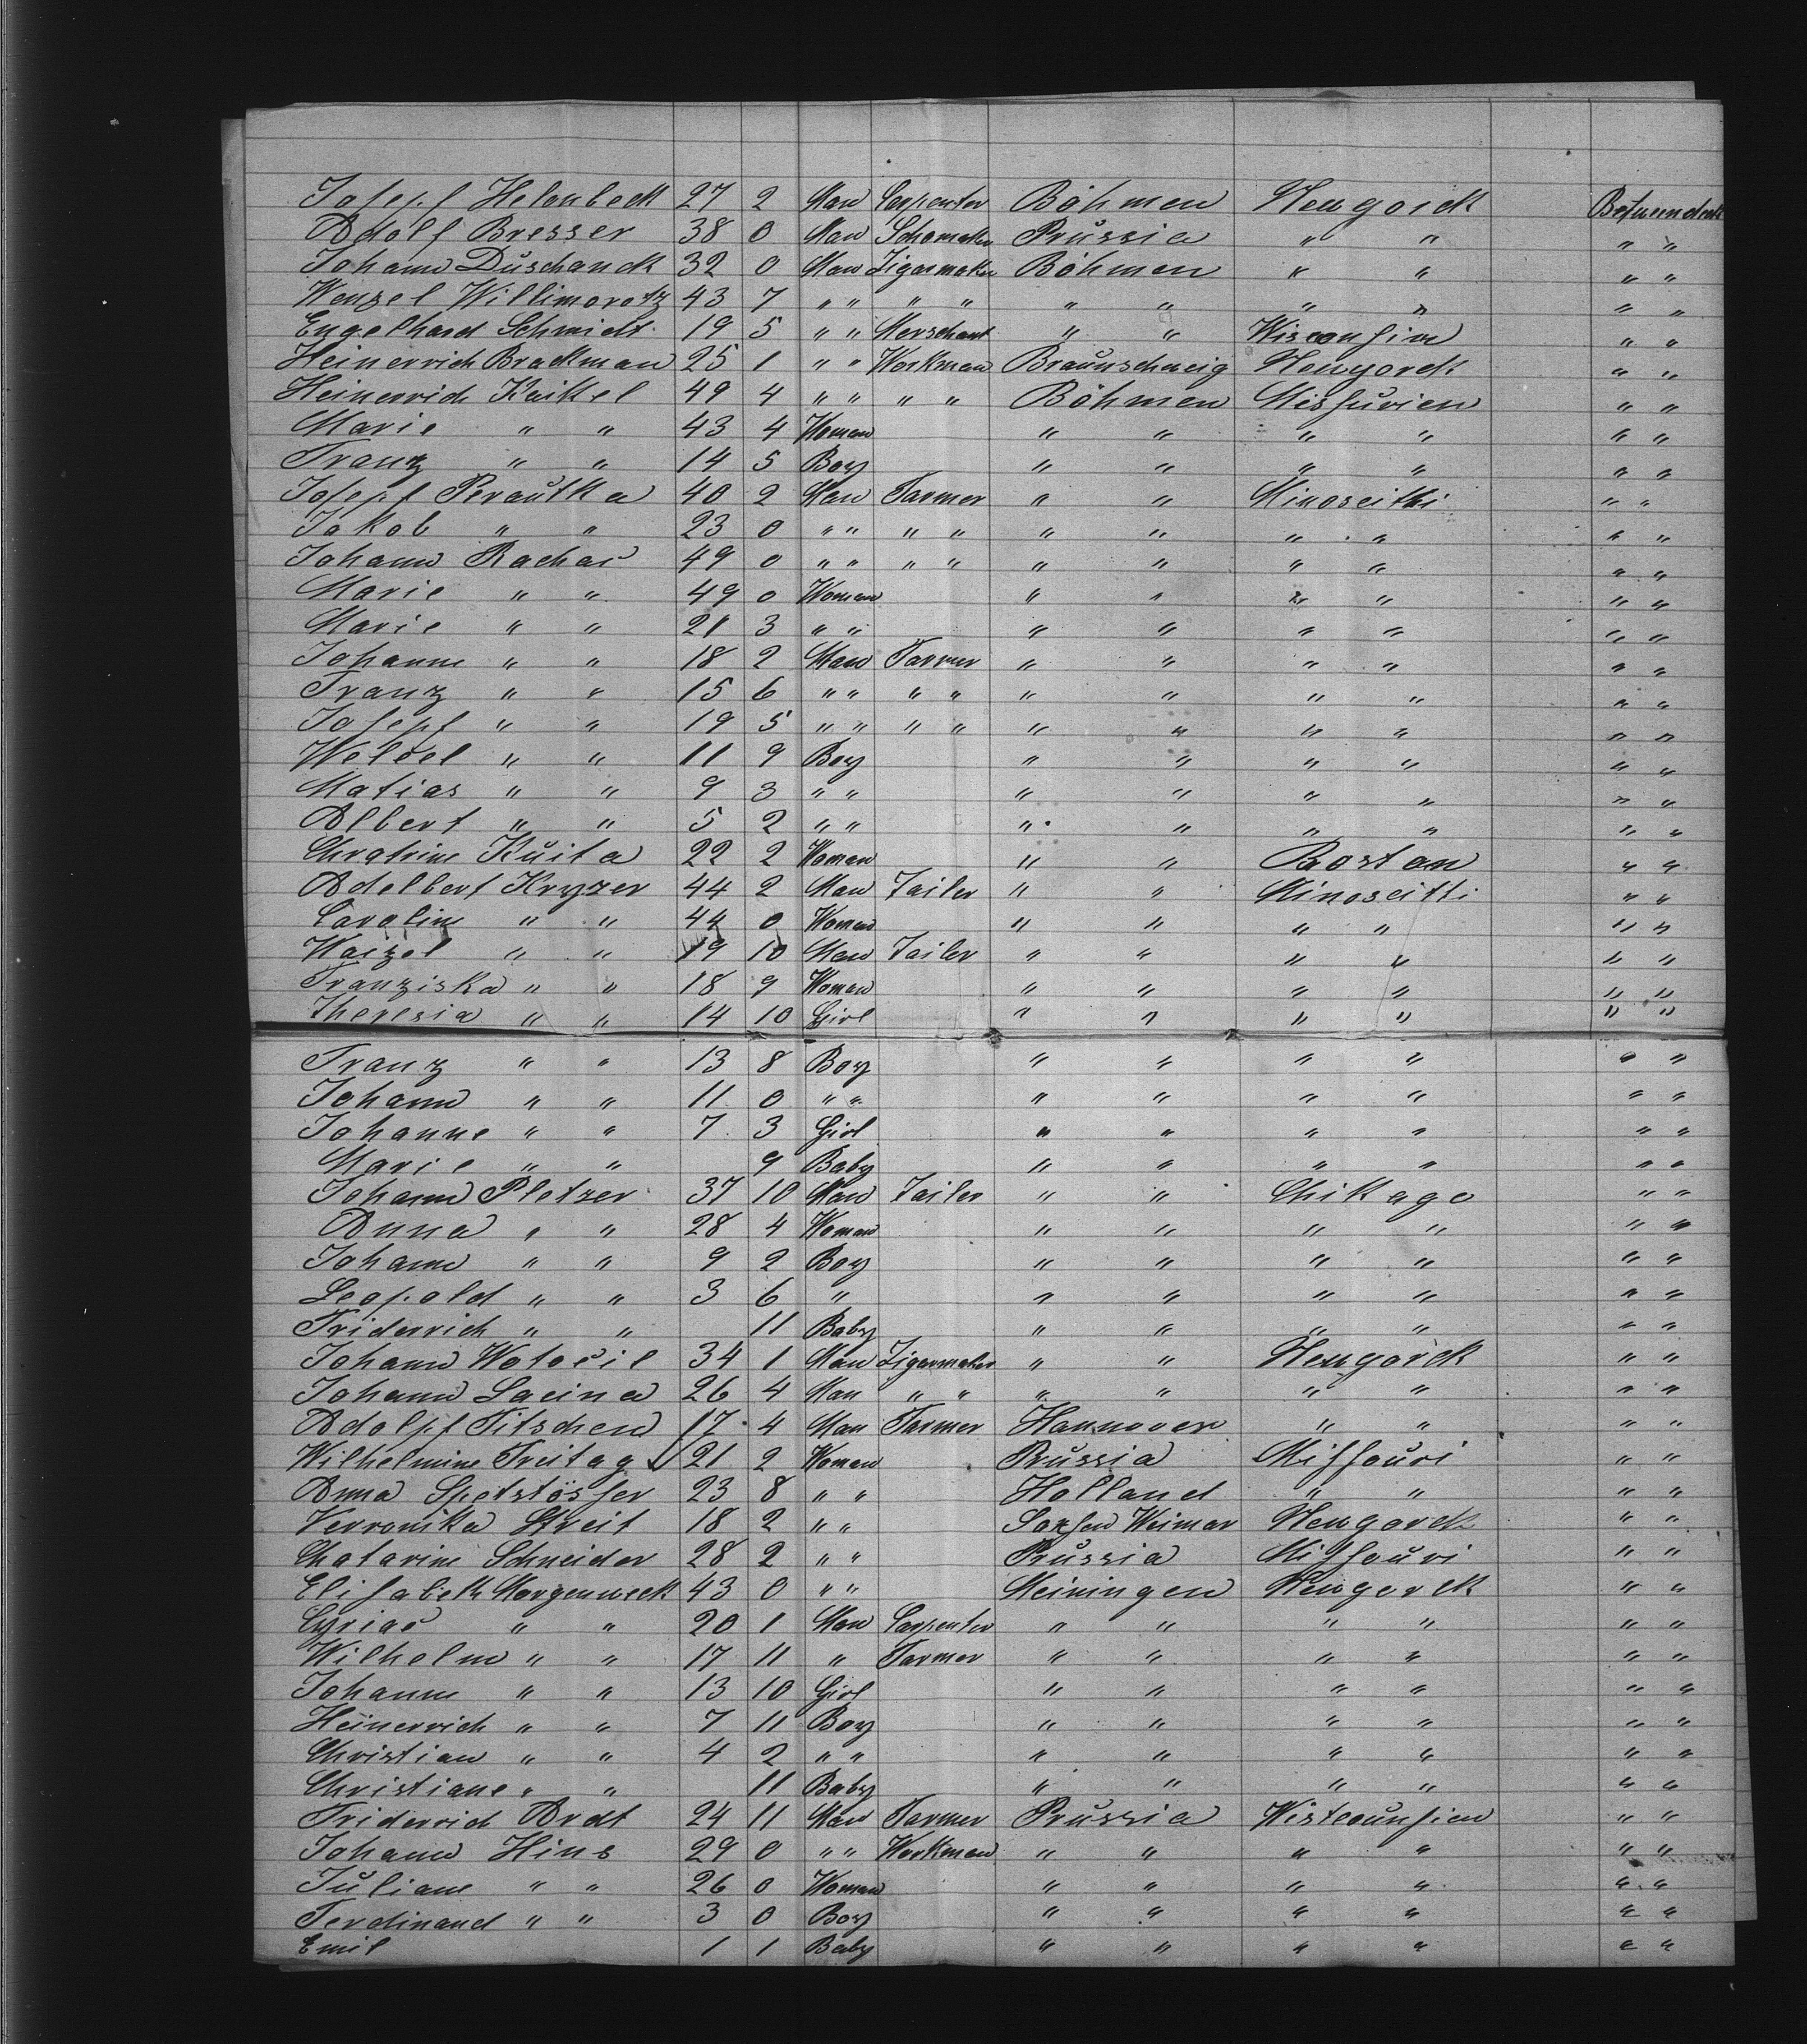 Josepf Helenbeck 27 2 Man Carpenter Böhmen Newyorck Betweendeck
Adolf Bresser 38 0 Man Schomaker Prussia " " " "
Johann Duschanck 32 0 Man Zigarmaker Böhmen " " " "
Wenzel Willimovotz 43 7 " " " " " " " " " "
Engelhard Schmidt 19 5 " " Merschant " " Wisconsin " "
Heinerrich Brackman 25 1 " " Workman Braunschweig Newyorck " "
Heinerrich Kaikel 49 4 " " " " Böhmen Missurien " "
Marie " " 43 4 Woman " " " " " "
Franz " " 14 5 Boy " " " " " "
Josepf Perautka 40 2 Man Farmer " " Minoseitti " "
Jakob " " 23 0 " " " " " " " " " "
Johann Rachac 49 0 " " " " " " " " " "
Marie " " 49 0 Woman " " " " " "
Marie " " 21 3 " " " " " " " "
Johann " " 18 2 Man Farmer " " " " " "
Franz " " 15 6 " " " " " " " " " "
Josepf " " 19 5 " " " " " " " " " "
Weldel " " 11 9 Boy " " " " " "
Matias " " 9 3 " " " " " " " "
Albert " " 5 2 " " " " " " " "
Chratrine Kuita 22 2 Woman " " Bostan " "
Adelbert Kryzer 44 2 Man Tailer " " Minoseitti " "
Caroline " " 44 0 Woman " " " " " "
Waizel " " 19 10 Man Tailer " " " " " "
Franziska " " 18 9 Woman " " " " " "
Theresia " " 14 10 Girl " " " " " "
Franz " " 13 8 Boy " " " " " "
Johann " " 11 0 " " " " " " " "
Johanne " " 7 3 Girl " " " " " "
Marie " " 9 Baby " " " " " "
Johann Pletzer 37 10 Man Tailer " " Chikago " "
Anna " " 28 4 Woman " " " " " "
Johann " " 9 2 Boy " " " " " "
Leopold " " 3 6 " " " " " " "
Friderrich " " 11 Baby " " " " " "
Johann Watocil 34 1 Man Zigarmaker " " Newyorck " "
Johann Lacina 26 4 Man " " " " " " " "
Adolpf Titschen 17 4 Man Farmer Hannover " " " "
Wilhelmine Freitag 21 2 Woman Prussia Missouri " "
Anna Spetstösser 23 8 " " Holland " " " "
Verronika Streit 18 2 " " Saxsen Weimar Newyorck " "
Chatarine Schneider 28 2 " " Prussia Missouri " "
Elisabeth Morgenweck 43 0 " " Meiningen Newyorck " "
Cyriac " " 20 1 Man Carpenter " " " " " "
Wilhelm " " 17 11 " Farmer " " " " " "
Johanne " " 13 10 Girl " " " " " "
Heinerrich " " 7 11 Boy " " " " " "
Christian " " 4 2 " " " " " " " "
Christiane " " 11 Baby " " " " " "
Friderrich Ardt 24 11 Man Farmer Prussia Wistcounsien " "
Johann Hins 29 0 " " Workman " " " " " "
Juliane " " 26 0 Woman " " " " " "
Ferdinand " " 3 0 Boy " " " " " "
Emil 1 1 Baby " " " " " "